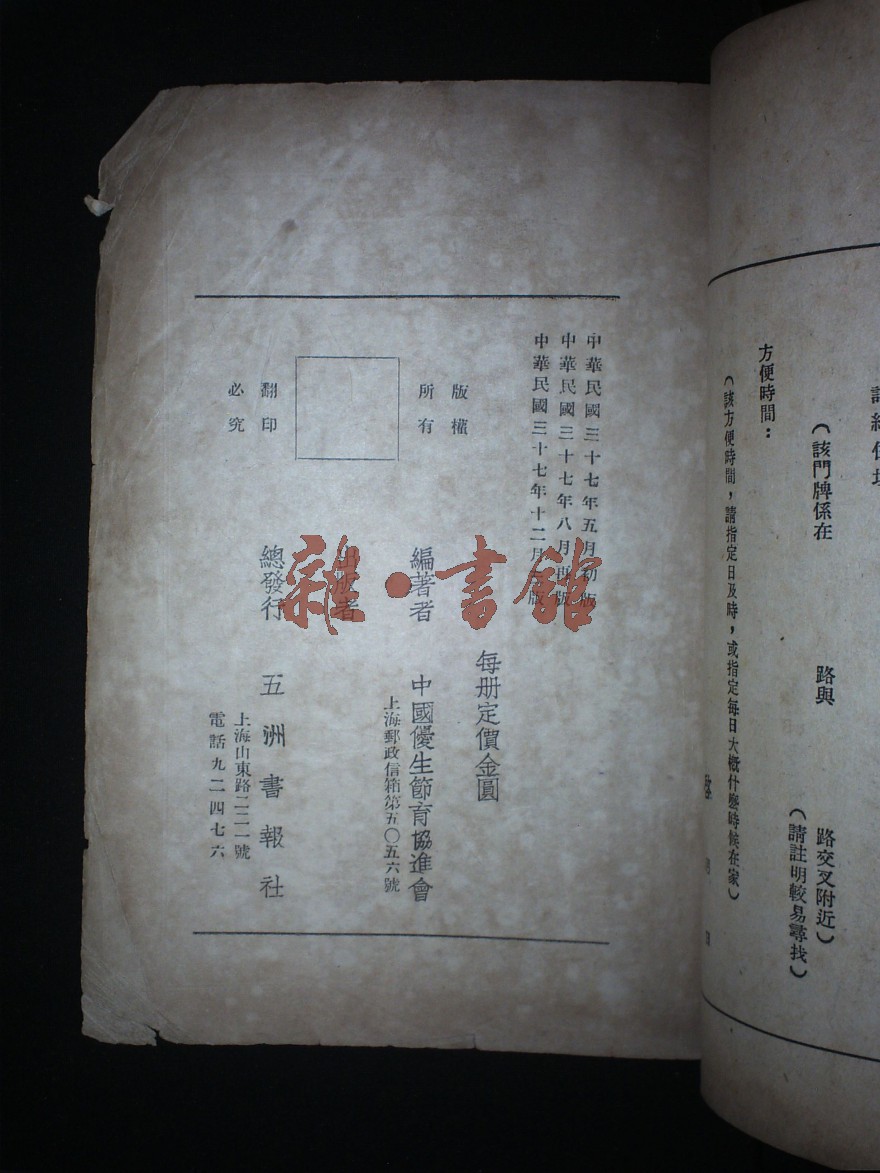 方便時間：
（該方便時間，請指定日及時，或指定每日大概什麼時候在家）
（該門牌係在　路與　路交叉附近）
（請註明較易尋找）
中華民國三十七年五月初版
中華民國三十七年八月再版
中華民國三十七年十二月版
每册定價金圓
版權
所有
翻印
必究
編著者
出版者
中國優生節育協進會
上海郵政信箱第五〇五六號
總發行　五洲書報社
上海山東路二二一號
電話九二四七六
雜·書館